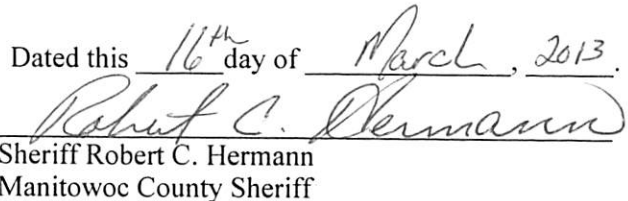 Dated this 16th day of March, 2013.
Robert C. Hermann
Sheriff Robert C. Hermann
Manitowoc County Sheriff